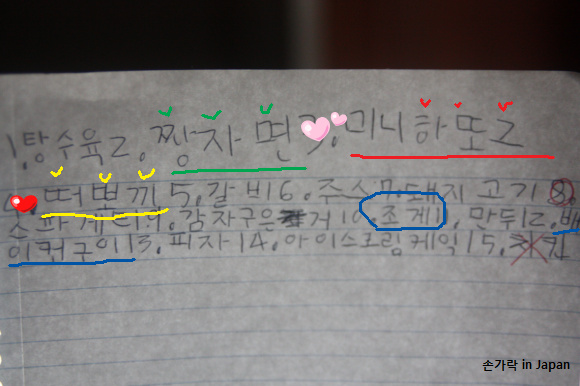 1.탕수육2.찡자면3.미니하또2
4.떠뽀끼5.갈비6.주스7.돼지고기8.
스파게티9.감자구은거10.조게11.만두12.베
이컨구이13.피자14.아이스크림케익15.
손가락 in Japan